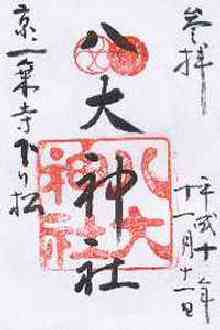 参拝
八大神社
八大神社
京一乗寺下り松
平成十一年
十一月十一日